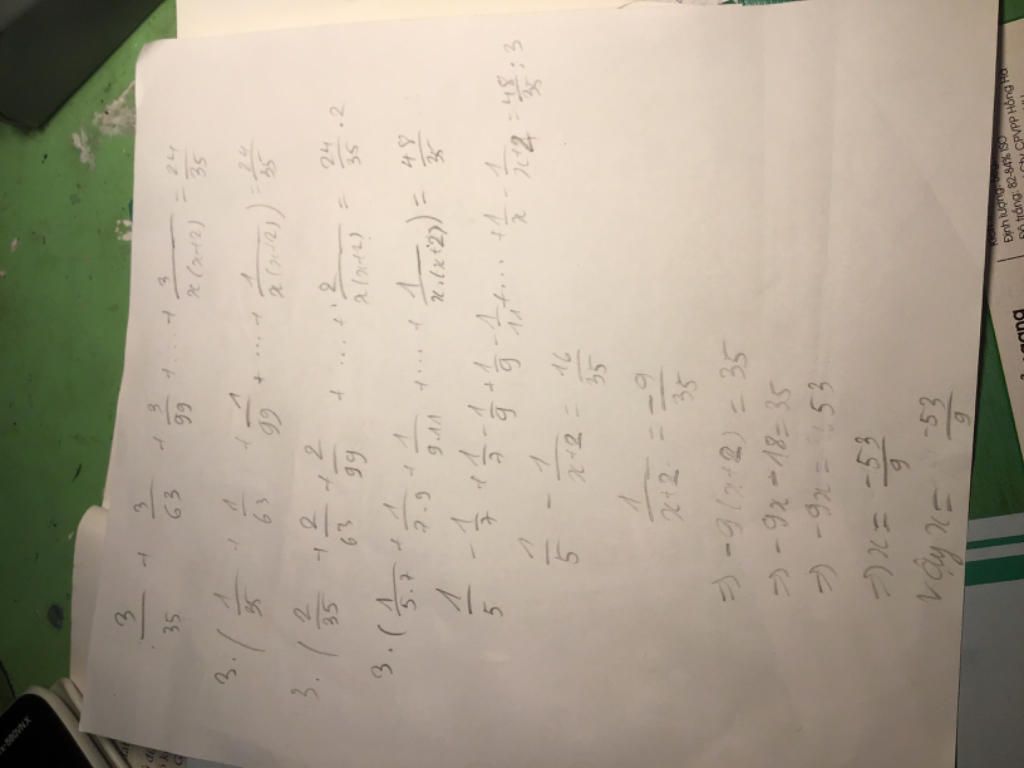 3/35 + 3/63 + 3/99 + .... + 3/x(x+2) = 24/35
3.(1/35 + 1/63 + 1/99 + ... + 1/x(x+2)) = 24/35
3.(2/35 + 2/63 + 2/99 + .... + 2/x(x+2) = 24/35 . 2
3.(1/5.7 + 1/7.9 + 1/9.11 + .... + 1/x.(x+2)) = 48/35
1/5 - 1/7 + 1/7 - 1/9 + 1/9 - 1/11 + .... + 1/x - 1/x+2 = 48/35 : 3
1/5 - 1/x+2 = 16/35
1/x+2 = -9/35
=> -9(x+2) = 35
=> -9x - 18 = 35
=> -9x = 53
=> x = -53/9
Vậy x = -53/9
Định lượng:
Độ trắng: 82-84% ISO
CPVPP Hồng Hà